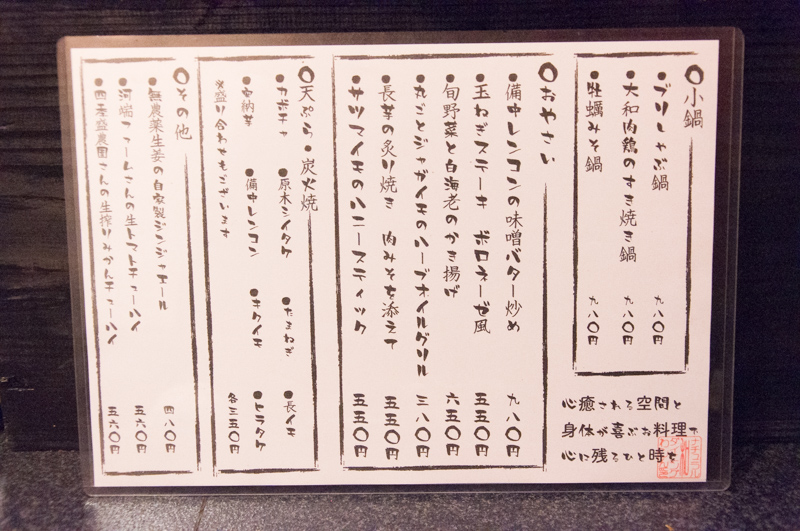 小鍋
●ブリしゃぶ鍋 九八〇円
●大和肉鶏のすき焼き鍋 九八〇円
●牡蠣みそ鍋 九八〇円
おやさい
●備中レンコンの味噌バター炒め 九八〇円
●玉ねぎステーキ ボロネーゼ風 五五〇円
●旬野菜と白海老のかき揚げ 六五〇円
●丸ごとジャガイモのハーブオイルグリル 三八〇円
●長芋の炙り焼き 肉みそを添えて 五五〇円
●サツマイモのハニースティック 五五〇円
天ぷら・炭火焼
●カボチャ ●原木シイタケ ●たまねぎ ●長イモ
●安納芋 ●備中レンコン ●キクイモ ●トラタケ 各三五〇円
※盛り合わせもございます
その他
●無農薬生姜の自家製ジンジャエール 四八〇円
●河端ファームさんの生トマトチューハイ 五六〇円
●四季盛農園さんの生搾りみかんチューハイ 五六〇円
心癒される空間と
身体が喜ぶお料理で
心に残るひと時を
ナチュラル